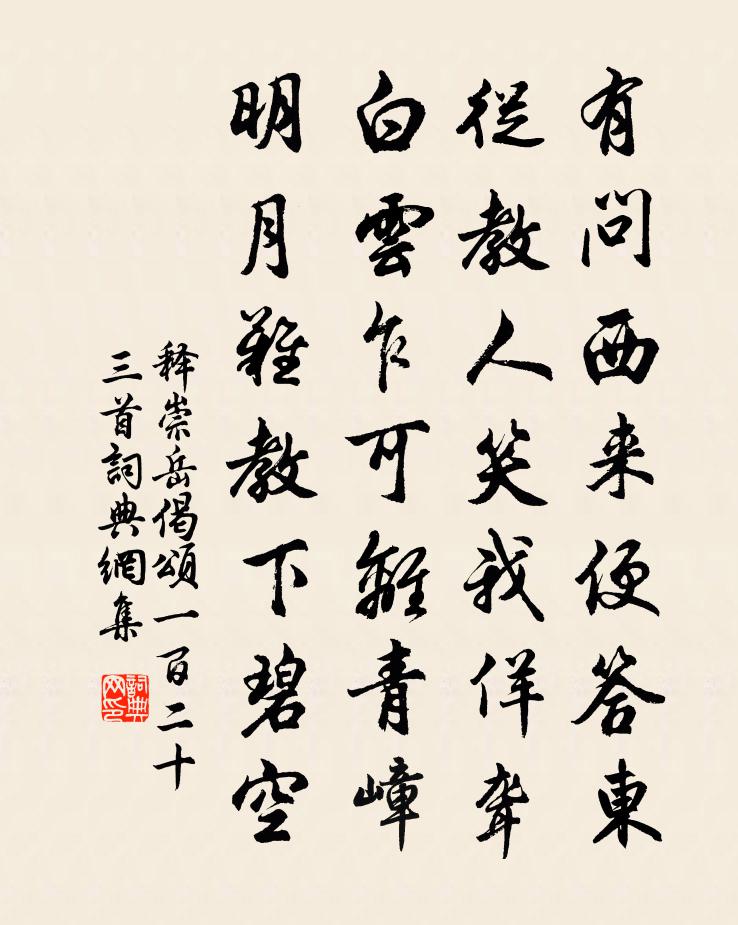 有問西来便答東
從教人笑我佯聾
白雲乍可離青嶂
明月難教下碧空
释崇岳偈頌一百二十
三首詞典網集
詞典
网印